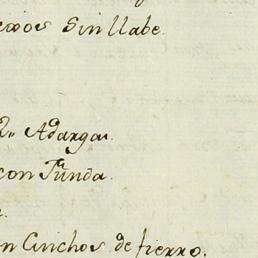 Sin llabe.
Adargas.
con Funda.
Cinchos de fierro.